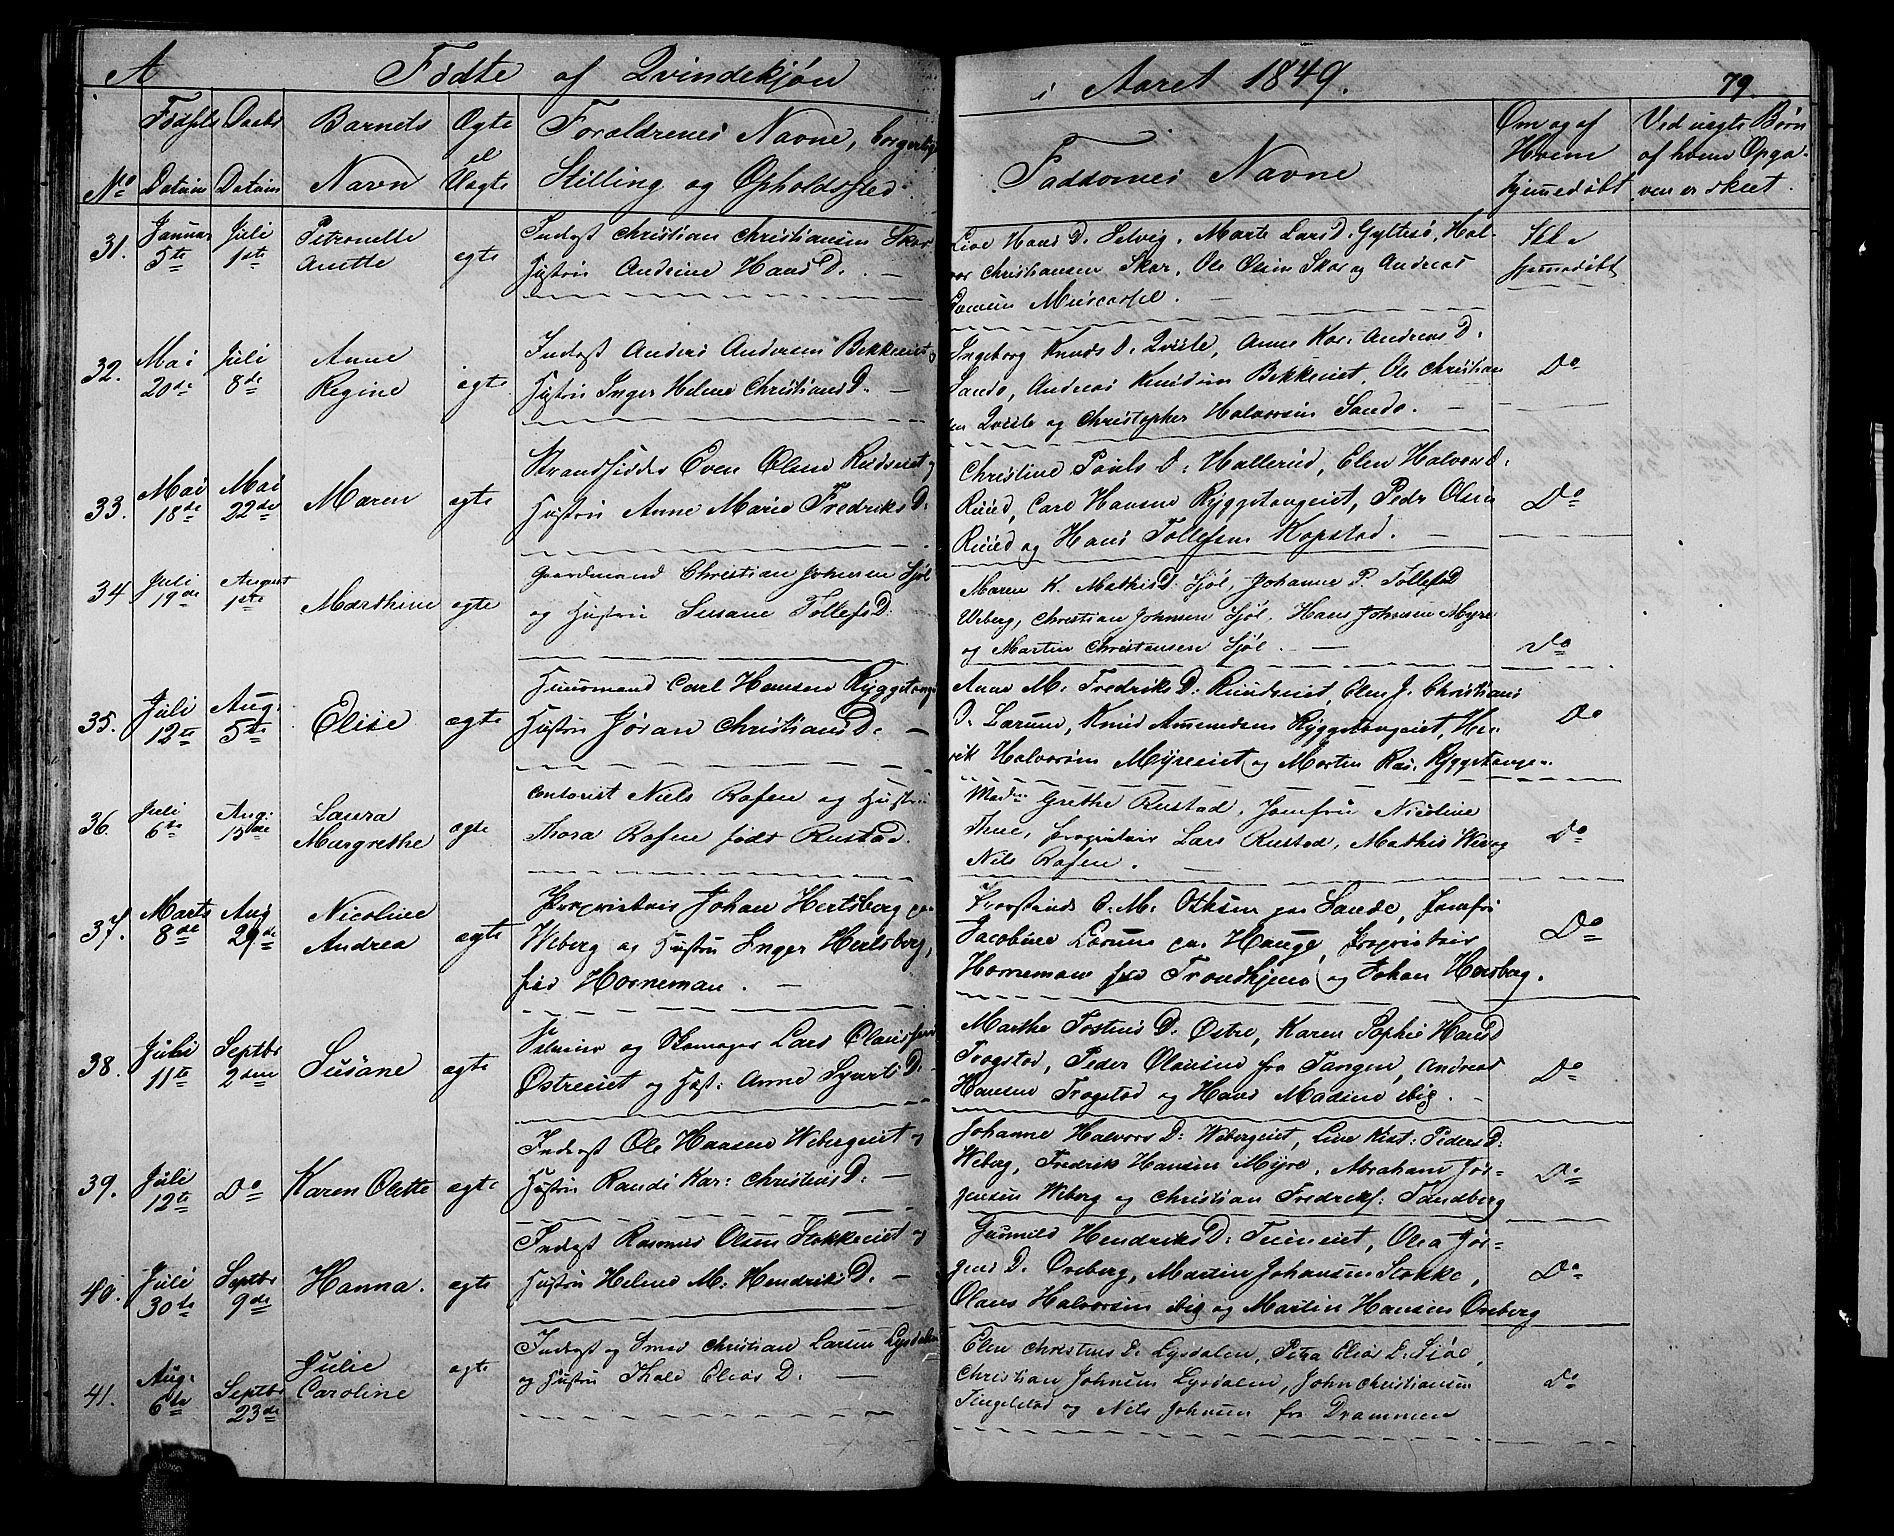 A Födte af Qvindekjön i Aaret 1849. 79.
No Födsels Datum Daabs Datum Barnets Navn Ægte el Uægte Forældrenes Navne, borgerlige Stilling og Opholdssted. Faddernes Navne Om og af Hvem hjemmedöbt Ved uægte Börn af hvem Opga-
ven er skeet.
31. Januar 5te Juli 1ste Petronelle Anette ægte
Inderst Christian Christiansen Skar
Hustru Andrine Hans D.
Live Hans D. Selvig, Marte Lars D. Gyltesö, Hal-
vor Christiansen Skar, Ole Olsen Skar og Andreas
Ikke hjemmedöbt
32. Mai 20de Juli 8de Anne Regine ægte
Inderst Anders Andersen Bekkeeiet
Hustru Inger Helene Christians D.
Ingeborg Knuds D. Qvisle, Anne Kar. Andreas D.
Sando, Andreas Knudsen Bekkeeiet, Ole Christian
en Qvisle og Christopher Halvorsen Sando.
Do
33. Mai 18de Mai 22de Maren ægte
Strandsidder Even Olsen Rudseiet
Hustru Anne Marie Fredriks D.
Christine Pauls D: Hallerud, Elen Halvors D.
Ruud, Carl Hansen Ryggetangeiet, Peder Olsen
Ruud og Hans Tollefsen Kopstad.
Do
34 Juli 19de August 1ste Marthine ægte
Gaardmand Christian Johnsen Sjöl
og Hustru Susane Tollefs D.
Maren K. Mathis D. Sjöl, Johanne P. Tollefs D
Weberg, Christian Johnsen Sjöl, Hans Johnsen Myre
og Martin Christensen Sjöl.
Do
35. Juli 12te Aug. 5te Elise ægte
Huusmand Carl Hansen Ryggetang
Hustru Jöran Christians D.
Anne M. Fredriks D: Ruudseiet, Elen J. Christians
D. Larum, Knud Amundsen Ryggetangeiet, Hen-
rik Halvorsen Myreeiet og Morten Ras. Ryggetange
Do
36. Juli 6te Aug. 15de Laura Margrethe ægte
Contorist Niels Rafen og Hustru
Thora Rafen född Rustad.
Madm Grethe Rustad, Jomfru Nicoline
Thue, Proprietair Lars Rustad, Mathis Weberg
Nils Rafen.
Do
37. Marts 8de Aug 29de Nicoline Andrea ægte
Proprietair Johan Hertsberg paa
Weberg og Hustru Inger Hertsberg,
föd Horneman.
C. M. Othsen paa Sande, Jomfru
Jacobine Larum paa Hauge, Proprietair
Horneman fra Trondhjem og Johan Hersberg.
Do
38. Juli 11te Septbr 2den Susane ægte
og Skomager Lars Olausen
Östreeiet og Hust: Anne Syverts D.
Marthe Tostens D: Östre, Karen Sophie Hans D
Trogstad, Peder Olausen fra Tangen, Andreas
Hansen Trogstad og Hans Madsen ibig.
Do
39. Juli 12te Do Karen Olette ægte
Inderst Ole Hansen Webergeiet
Hustru Randi Kar: Christens D.
Johanne Halvors D: Webergeiet, Live Kirst. Peders D.
Weberg, Fredrik Hansen Myre, Abraham Jör-
gensen Weberg og Christian Fredriks: Sandberg
Do
40. Juli 30te Septbr 9de Hanna. ægte
Inderst Rasmus Olsen Stokkeeiet
Hustru Helene M: Hendriks D.
Gunnild Hendriks D: Tuineiet, Olea Jör-
gens D. Oreberg, Martin Johansen Stokke,
Olaus Halvorsen ibig og Martin Hansen Oreberg
Do
41. Aug. 6te Septbr 23de Julie Caroline ægte
Inderst og Smed Christian Larsen Lysdalen
og Hustru Thale Oleas D.
Elen Christens D. Lysdalen, Petra Oleas D.
Christian Johnsen Lysdalen, John Christiansen
Tingelstad og Nils Johnsen fra Drammen
Do